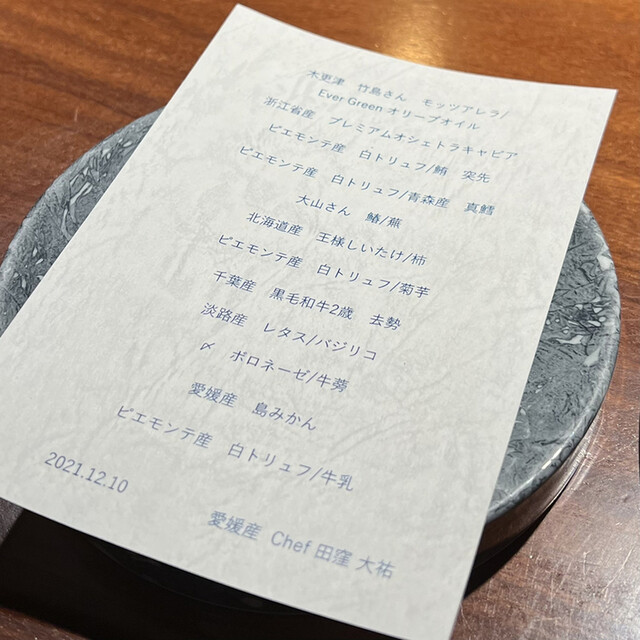 木更津 竹島さん モッツアレラ/
Ever Green オリーブオイル
浙江省産 プレミアムオシェトラキャビア
ピエモンテ産 白トリュフ/鮪 突先
ピエモンテ産 白トリュフ/青森産 真鱈
大山さん 鰆/蕪
北海道産 王様しいたけ/柿
ピエモンテ産 白トリュフ/菊芋
千葉産 黒毛和牛2歳 去勢
淡路産 レタス/バジリコ
〆 ボロネーゼ/牛蒡
愛媛産 島みかん
ピエモンテ産 白トリュフ/牛乳
2021.12.10
愛媛産 Chef 田窪 大祐